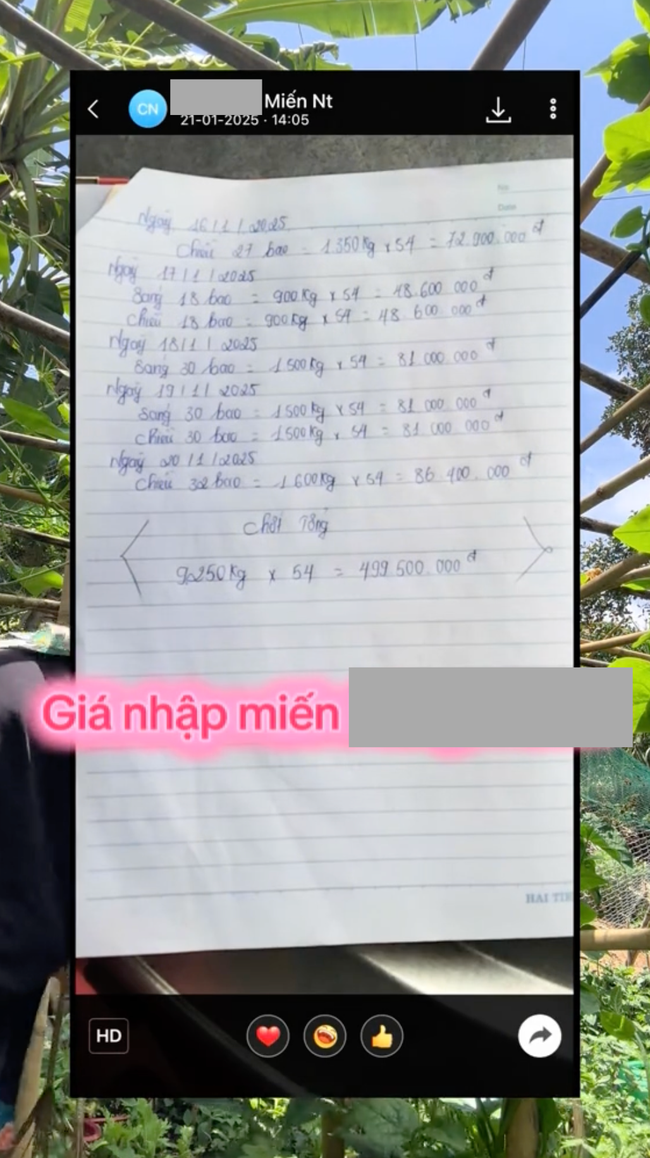 CN
Miến Nt
21-01-2025 · 14:05
No
Date
Ngày 16/1/2025
Chiều 27 bao = 1350Kg x 54 = 72.900.000đ
Ngày 17/1/2025
Sáng 18 bao = 900Kg x 54 = 48.600 000đ
Chiều 18 bao = 900Kg x 54 = 48.600 000đ
Ngày 18/1/2025
Sáng 30 bao = 1500Kg x 54 = 81 000.000đ
Ngày 19/1/2025
Sáng 30 bao = 1500Kg x 54 = 81 000 000đ
Chiều 30 bao = 1500Kg x 54 = 81 000 000đ
Ngày 20/1/2025
Chiều 32 bao = 1600Kg x 54 = 86.400.000đ
Tổng
9.250Kg x 54 = 499 500.000đ
Giá nhập miến
HAI TIẾ
HD